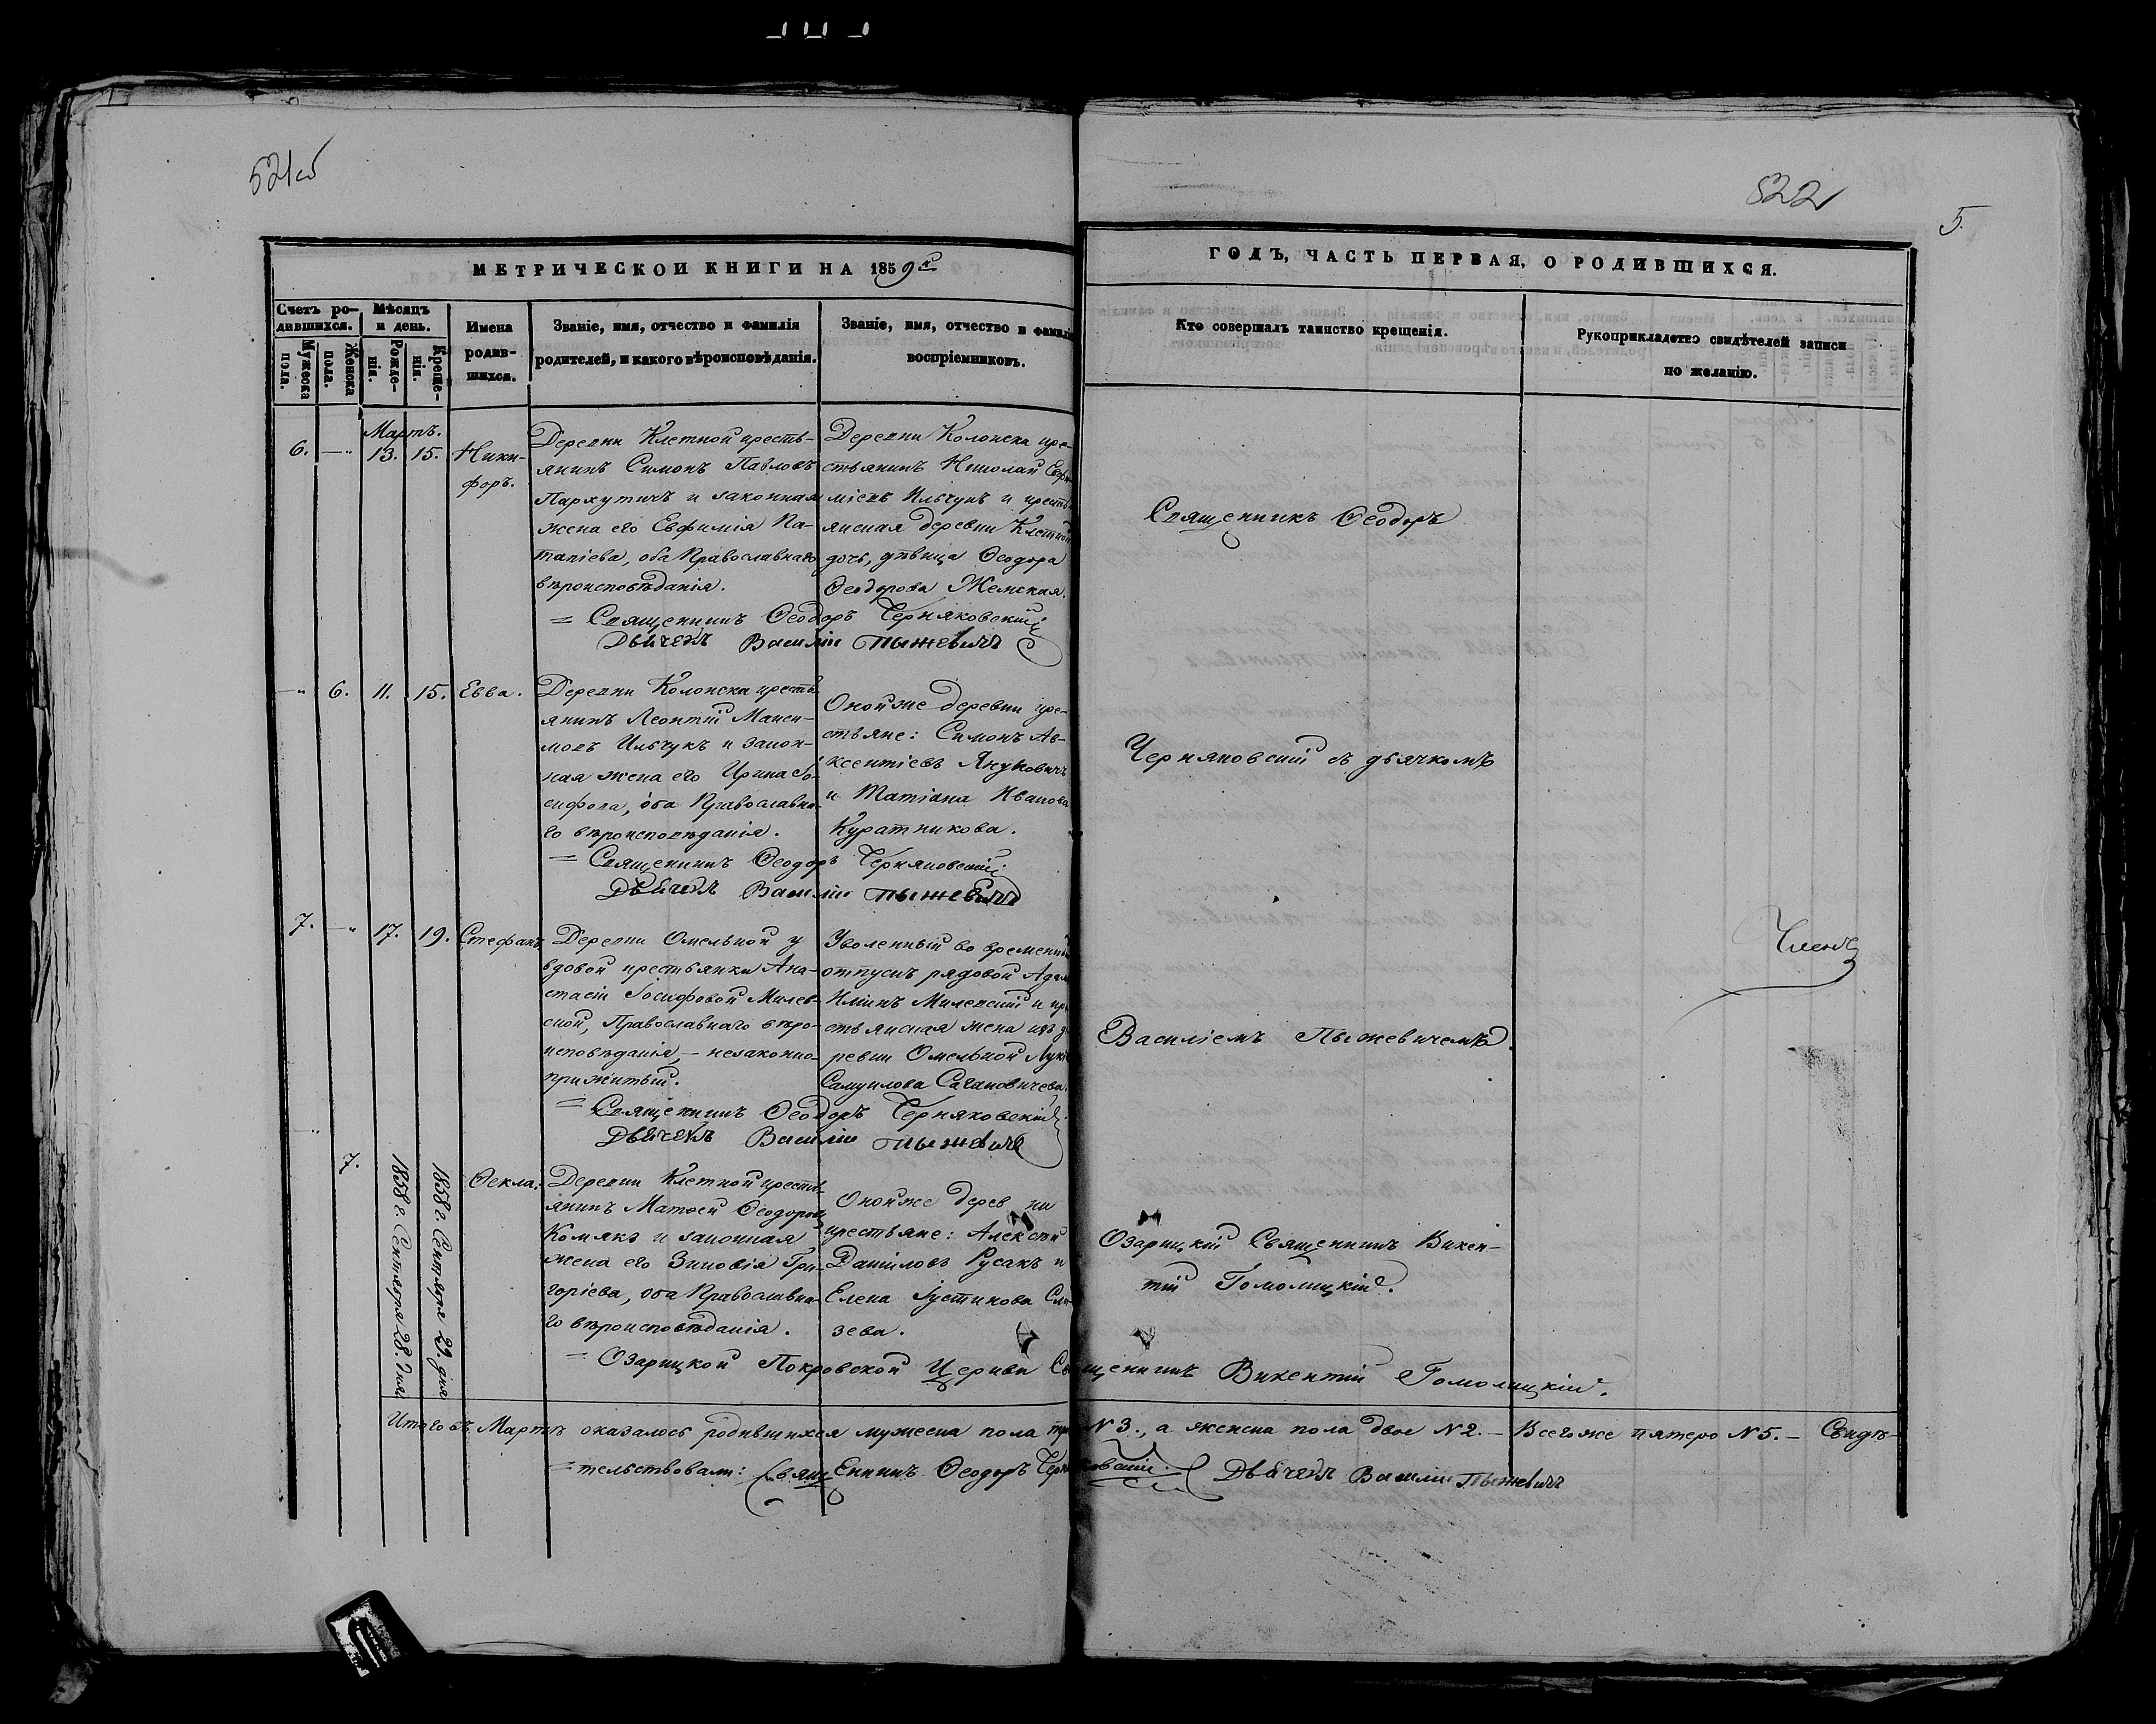 521об
822
5.
МЕТРИЧЕСКОЙ КНИГИ НА 1859й
ГОДЪ, ЧАСТЬ ПЕРВАЯ, О РОДИВШИХСЯ.
Счетъ ро-
дившихся.
Мужеска
пола.
Женска
пола.
Мѣсяцъ
и день.
Рожде-
нія.
Креще-
нія.
Имена
родив-
шихся.
Званіе, имя, отчество и фамилія
родителей, и какого вѣроисповѣданія.
Званіе, имя, отчество и фамилія
воспріемниковъ.
Кто совершалъ таинство крещенія.
Рукоприкладство свидѣтелей записи
по желанію.
Мартъ.
6. —„ 13. 15. Ники-
форъ.
Деревни Клетной кресть-
янинъ Симонъ Павловъ
Пархутичъ и законная
жена его Евфимія Па-
тапіева, оба Православнаго
вѣроисповѣданія.
Деревни Колонска кре-
стьянинъ Николай Евфи-
міевъ Ильчукъ и кресть-
янская деревни Клетной
дочь, дѣвица Ѳеодора
Ѳеодорова Жемская.
= Священникъ Ѳеодоръ Черняковскій
Дьячекъ Василій Пыжевичъ
—„ 6. 11. 15. Евва.
Деревни Колонска кресть-
янинъ Леонтій Макси-
мовъ Ильчукъ и закон-
ная жена его Ирина Іо-
сифова, оба Православна-
го вѣроисповѣданія.
Онойже деревни кре-
стьяне: Симонъ Ав-
ксентіевъ Януковичъ
и Татіана Иванова
Куратникова.
= Священникъ Ѳеодоръ Черняковскій
Дьячекъ Василій Пыжевичъ
7. —„ 17. 19. Стефанъ
Деревни Омельной у
вдовой крестьянки Ана-
стасіи Іосифовой Милев-
ской, Православнаго вѣро-
исповѣданія, — незаконно-
прижитый.
Уволенный во временный
отпускъ рядовой Адамъ
Илiинъ Милевскій и кре-
стьянская жена изъ де-
ревни Омельной Лукія
Самуилова Сагановичева.
= Священникъ Ѳеодоръ Черняковскій
Дьячекъ Василій Пыжевичъ
—„ 7. 1858 г. Сентября 28. дня
1858 г. Сентября 29. дня
Ѳекла.
Деревни Клетной кресть-
янинъ Матѳей Ѳеодоровъ
Комякъ и законная
жена его Зиновія Гри-
горіева, оба Православна-
го вѣроисповѣданія.
Онойже деревни
крестьяне: Алексѣй
Даніиловъ Русакъ и
Елена Іустинова Сли-
зева.
= Озарицкой Покровской Церкви Священникъ Викентій Гомолицкій.
Священникъ Ѳеодоръ
Черняковскій съ дьячкомъ
Василіемъ Пыжевичемъ.
Озарицкій Священникъ Викен-
тій Гомолицкій.
Членъ
Итого въ Мартѣ оказалось родившихся мужеска пола три №3., а женска пола двое №2.— Всегоже пятеро №5.— Свидѣ-
=тельствовали: Священникъ Ѳеодоръ Черняковскій. Дьячекъ Василій Пыжевичъ